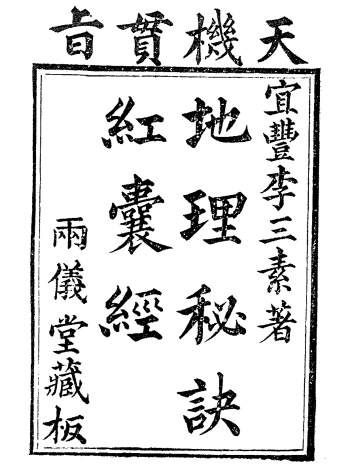 天機貫旨
宜豐李三素著
地理秘訣
紅囊經
兩儀堂藏板